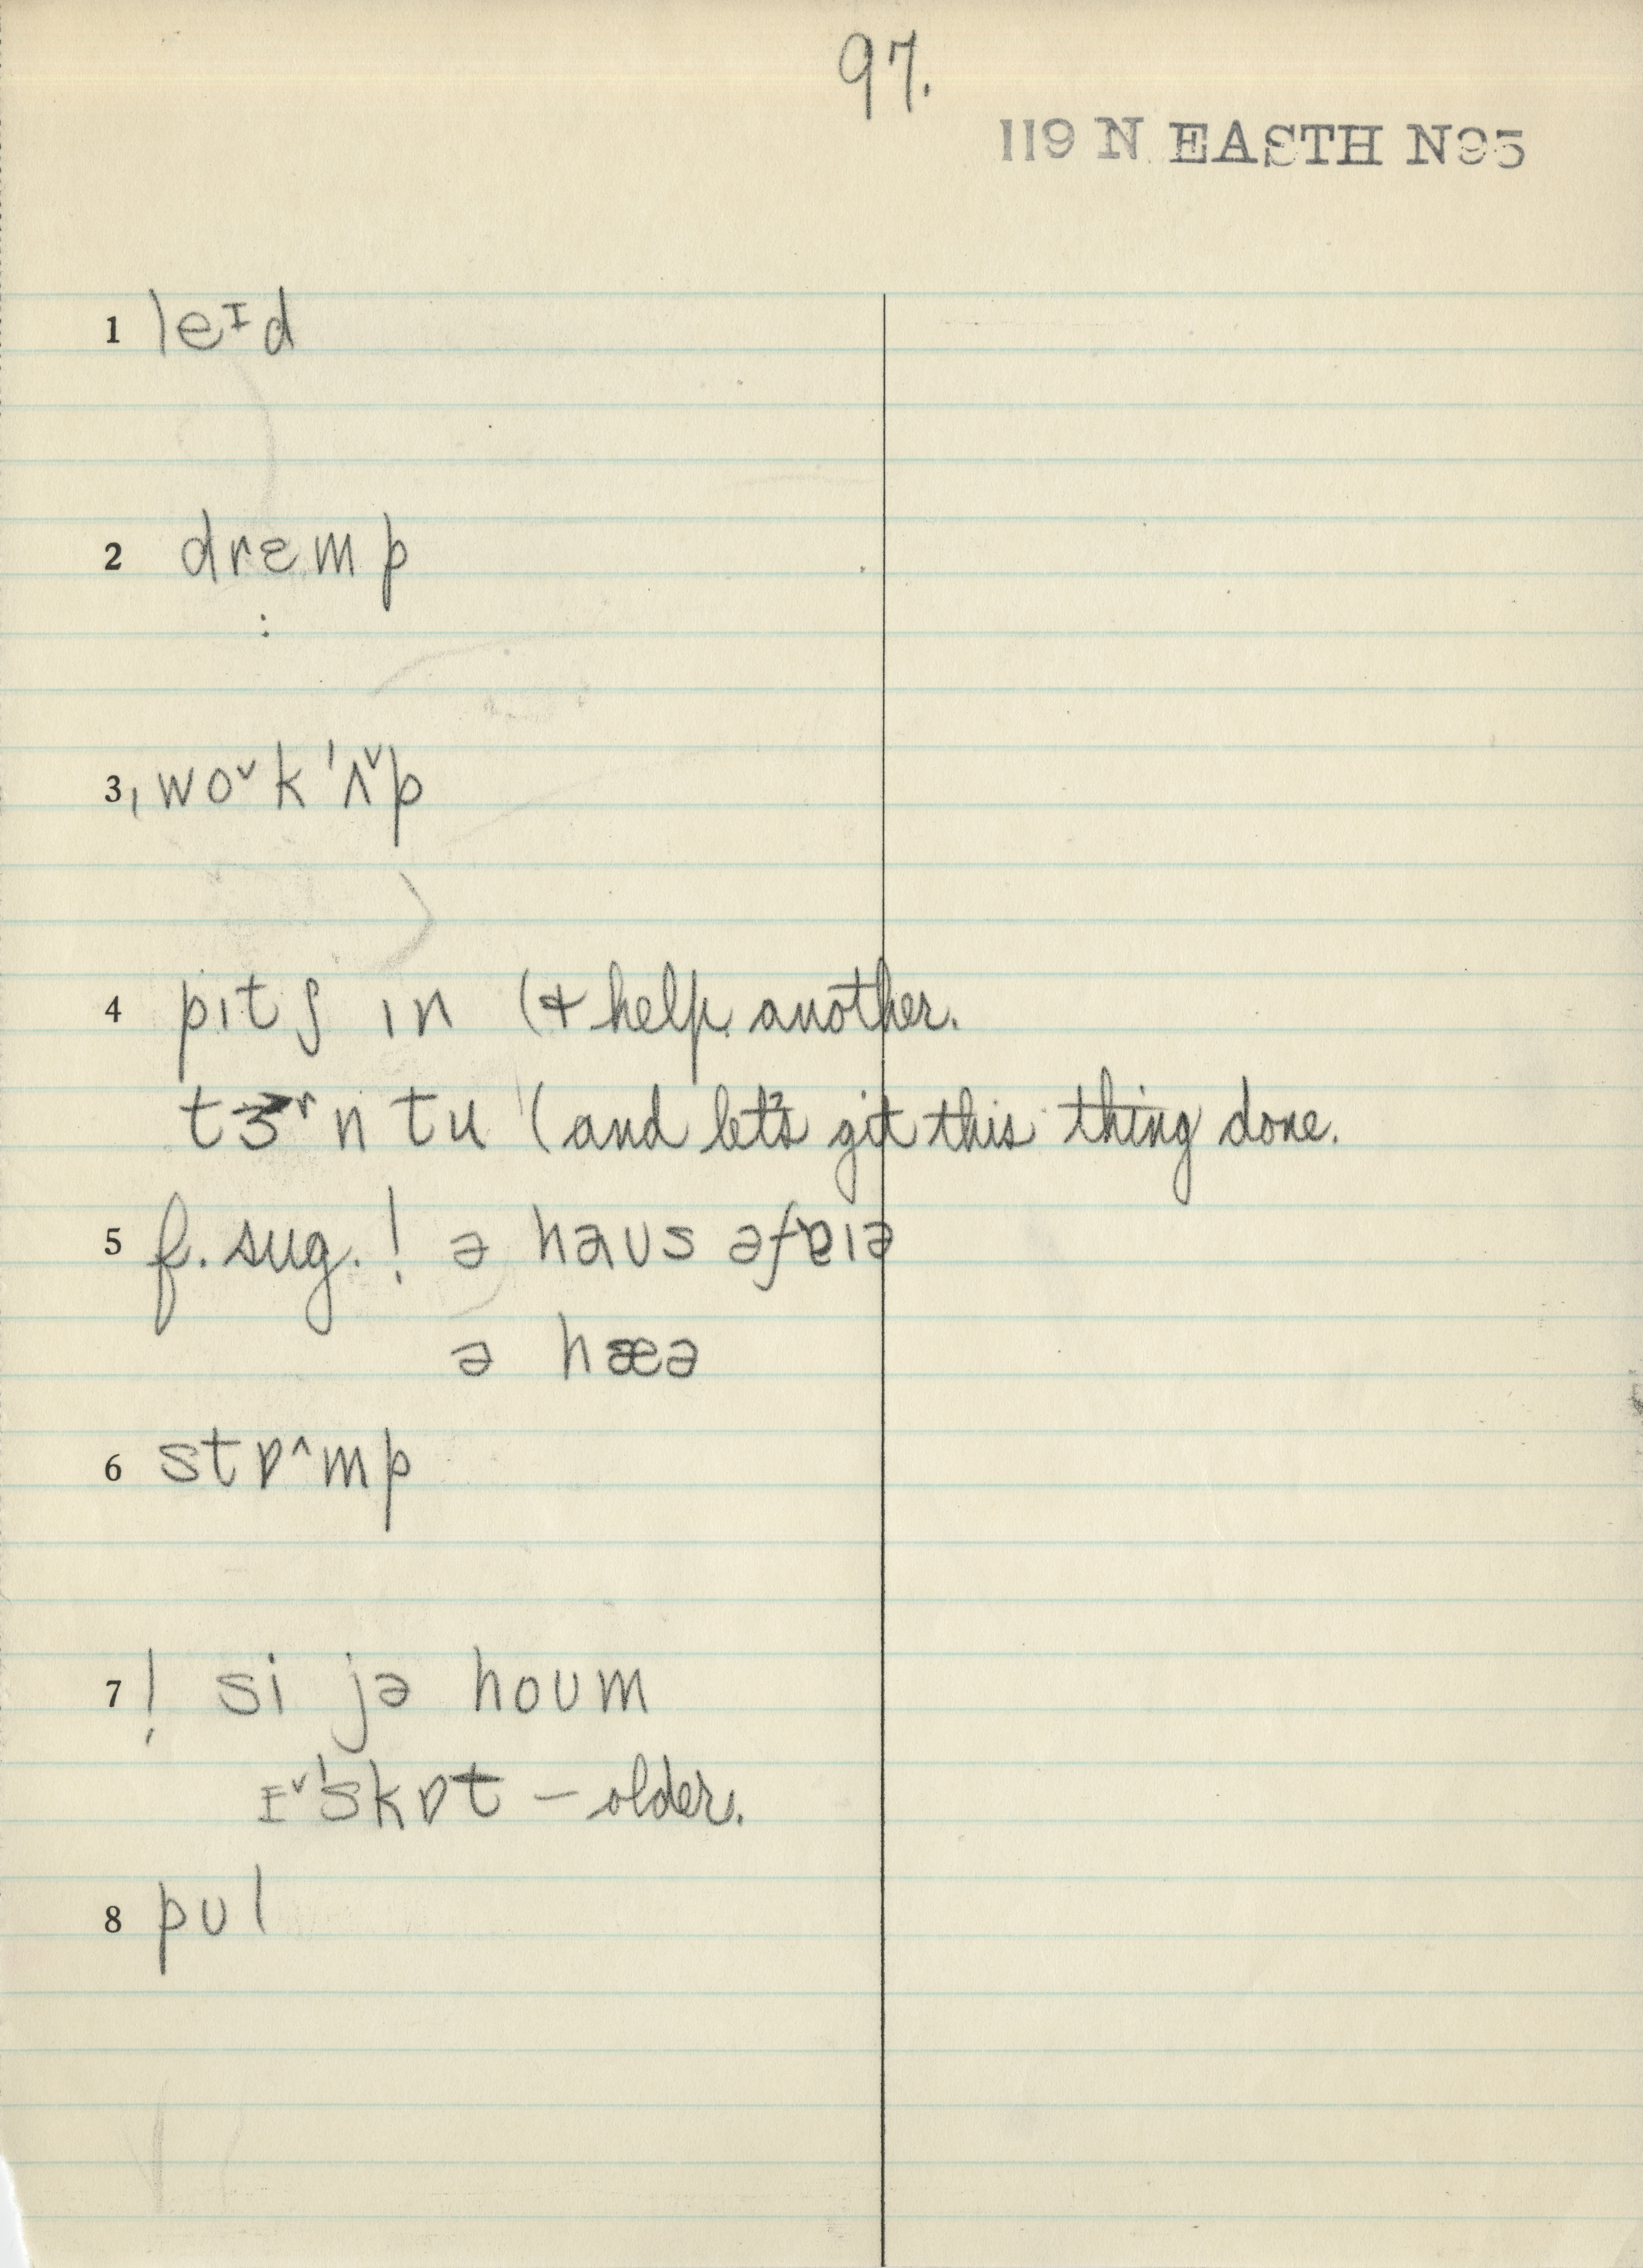 97.
119 N EASTH N95
1 leᴵd
2 drɛmp
:
3 ˌwo˅k ˈʌ˅p
4 pɪtʃ ɪn (& help another.
tɜʳn tu (and let's git this thing done.
5 f. sug. ! ə haʊs əfɐɪə
ə hæə
6 stɒ^mp
7 ! si jə hoʊm
ɪ˅ˈskɒt – older.
8 pʊl